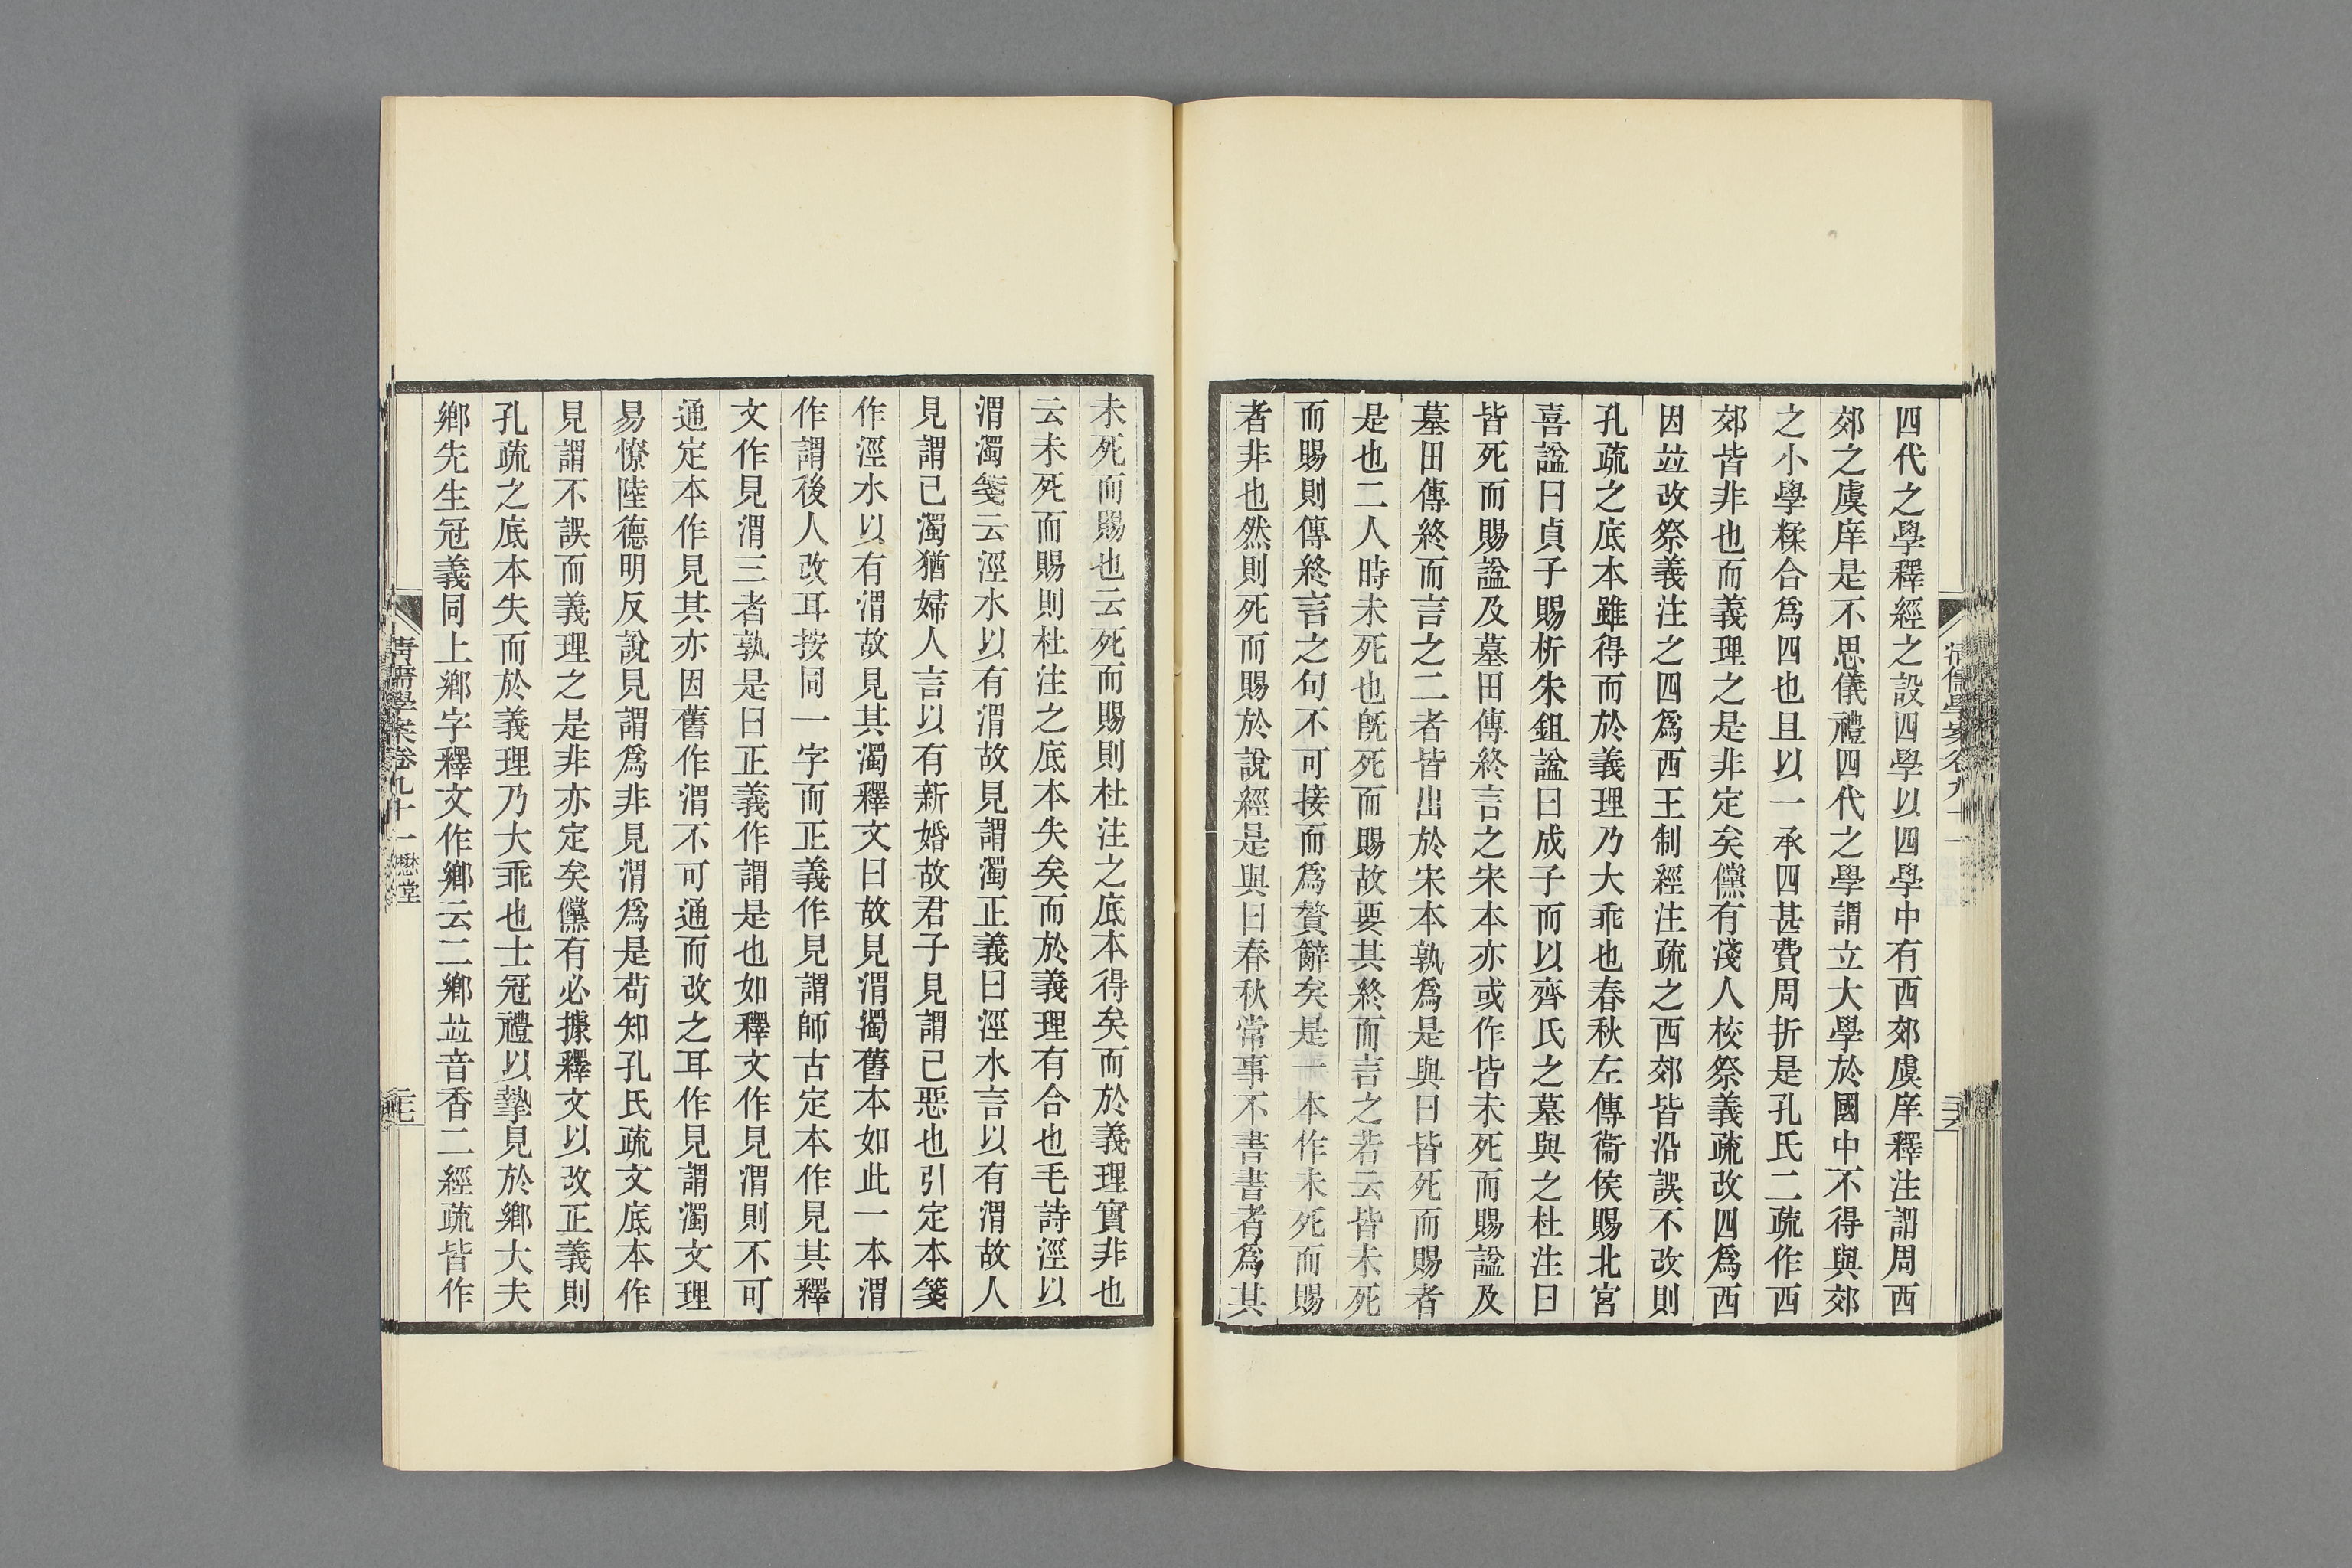 四代之學釋經之設四學以四學中有西郊虞庠釋注謂周西
郊之虞庠是不思儀禮四代之學謂立大學於國中不得與郊
之小學糅合爲四也且以一承四甚費周折是孔氏二疏作西
郊皆非也而義理之是非定矣儻有淺人校祭義疏改四爲西
因竝改祭義注之四爲西王制經注疏之西郊皆沿誤不改則
孔疏之底本雖得而於義理乃大乖也春秋左傳衞侯賜北宮
喜諡曰貞子賜析朱鉏諡曰成子而以齊氏之墓與之杜注曰
皆死而賜諡及墓田傳終言之宋本亦或作皆未死而賜諡及
墓田傳終而言之二者皆出於宋本孰爲是與曰皆死而賜者
是也二人時未死也旣死而賜故要其終而言之若云皆未死
而賜則傳終言之句不可接而爲贅辭矣是一本作未死而賜
者非也然則死而賜於說經是與曰春秋常事不書書者爲其
清儒學案卷九十一
二六
未死而賜也云死而賜則杜注之底本得矣而於義理實非也
云未死而賜則杜注之底本失矣而於義理有合也毛詩涇以
渭濁箋云涇水以有渭故見謂濁正義曰涇水言以有渭故人
見謂已濁猶婦人言以有新婚故君子見謂已惡也引定本箋
作涇水以有渭故見其濁釋文曰故見渭濁舊本如此一本渭
作謂後人改耳按同一字而正義作見謂師古定本作見其釋
文作見渭三者孰是曰正義作謂是也如釋文作見渭則不可
通定本作見其亦因舊作渭不可通而改之耳作見謂濁文理
易憭陸德明反說見謂爲非見渭爲是茍知孔氏疏文底本作
見謂不誤而義理之是非亦定矣儻有必據釋文以改正義則
孔疏之底本失而於義理乃大乖也士冠禮以摯見於鄉大夫
鄉先生冠義同上鄉字釋文作鄉云二鄉竝音香二經疏皆作
清儒學案卷九十一 懋堂
二七